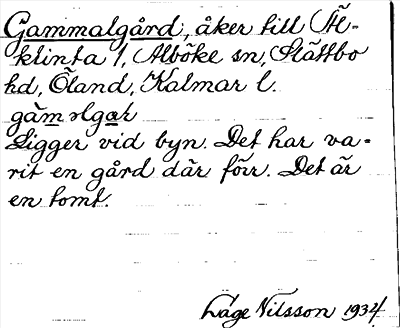 Gammalgård, åker till Äl-
klinta 1, Alböke sn, Slättbo
hd, Öland, Kalmar l.
gàmǝlgaɽ
Ligger vid byn. Det har va-
rit en gård där förr. Det är
en tomt.
Låge Nilsson 1934